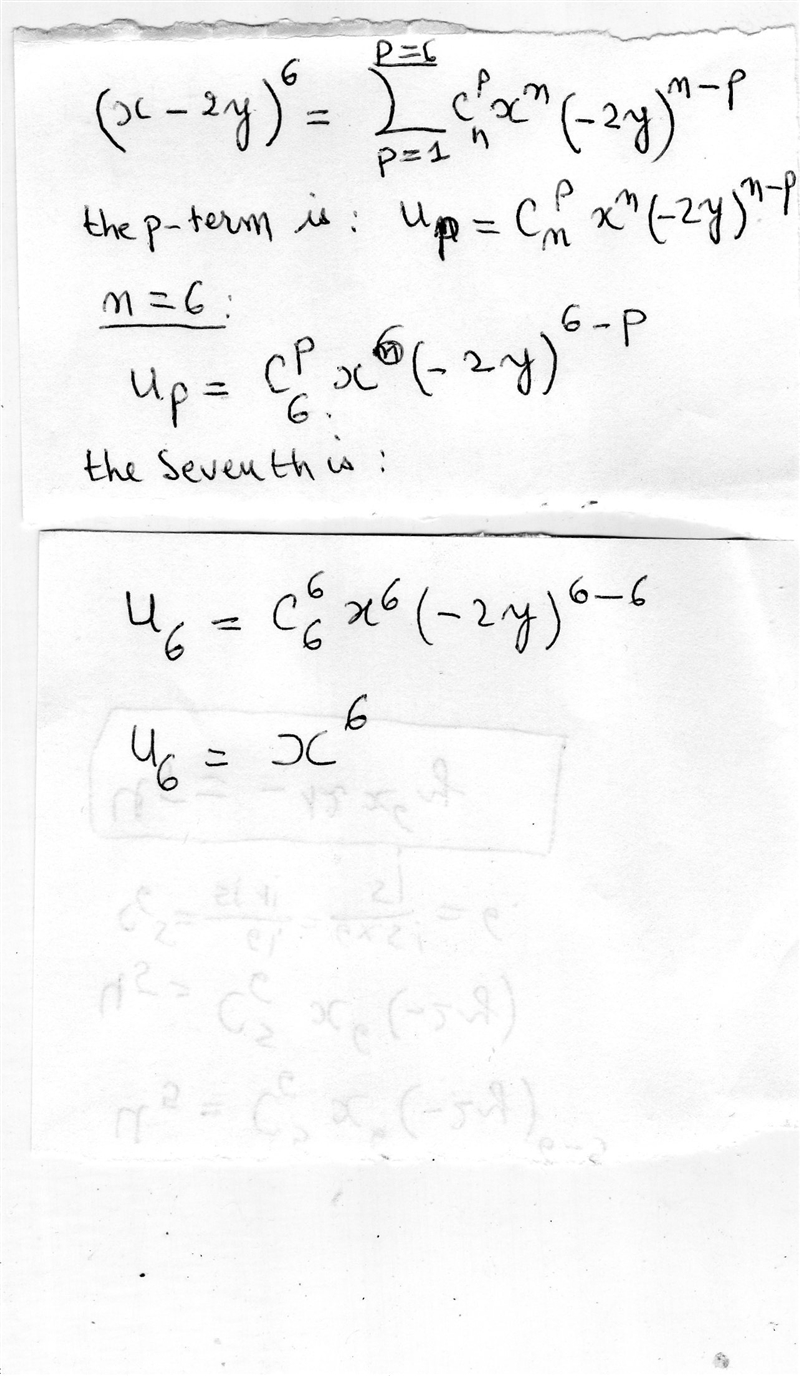 (x - 2y)^6 = \sum_{p=1}^{p=6} C_n^p x^n (-2y)^{n-p}
the p-term is: U_p = C_n^p x^n (-2y)^{n-p}
n = 6:
U_p = C_6^p x^6 (-2y)^{6-p}
the seventh is:
U_6 = C_6^6 x^6 (-2y)^{6-6}
U_6 = x^6